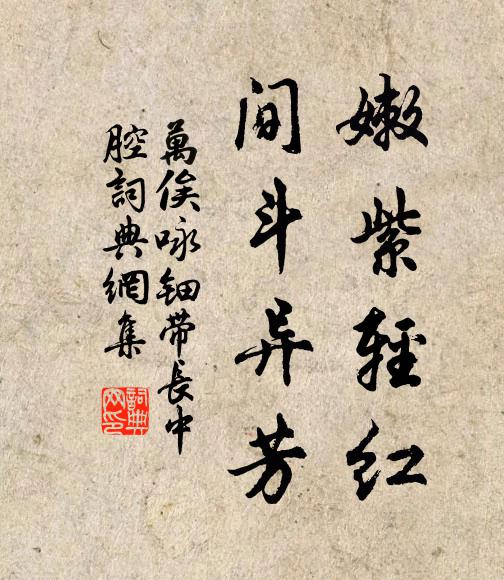 嫩紫輕红
间斗异芳
萬俟咏钿带長中
腔詞典網集
詞典网印